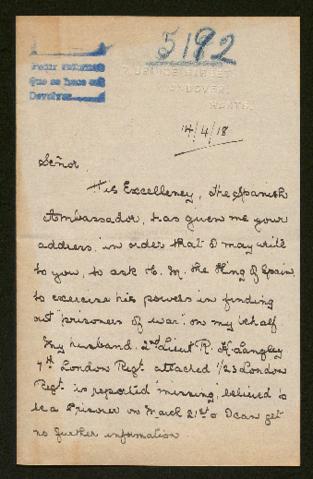 5192
Pedir
Que se hace
Devolver
ANDOVER,
HANTS.
14/4/18
Señor
His Excellency, the Spanish
Ambassador, has given me your
address, in order that I may write
to you, to ask H. M. the King of Spain
to exercise his powers in finding
out "prisoners of war" on my behalf
My husband. 2nd Lieut R. K. Langley
7th London Regt attached 1/23 London
Regt is reported "missing, believed to
be a Prisoner on March 21st & I can get
no further information